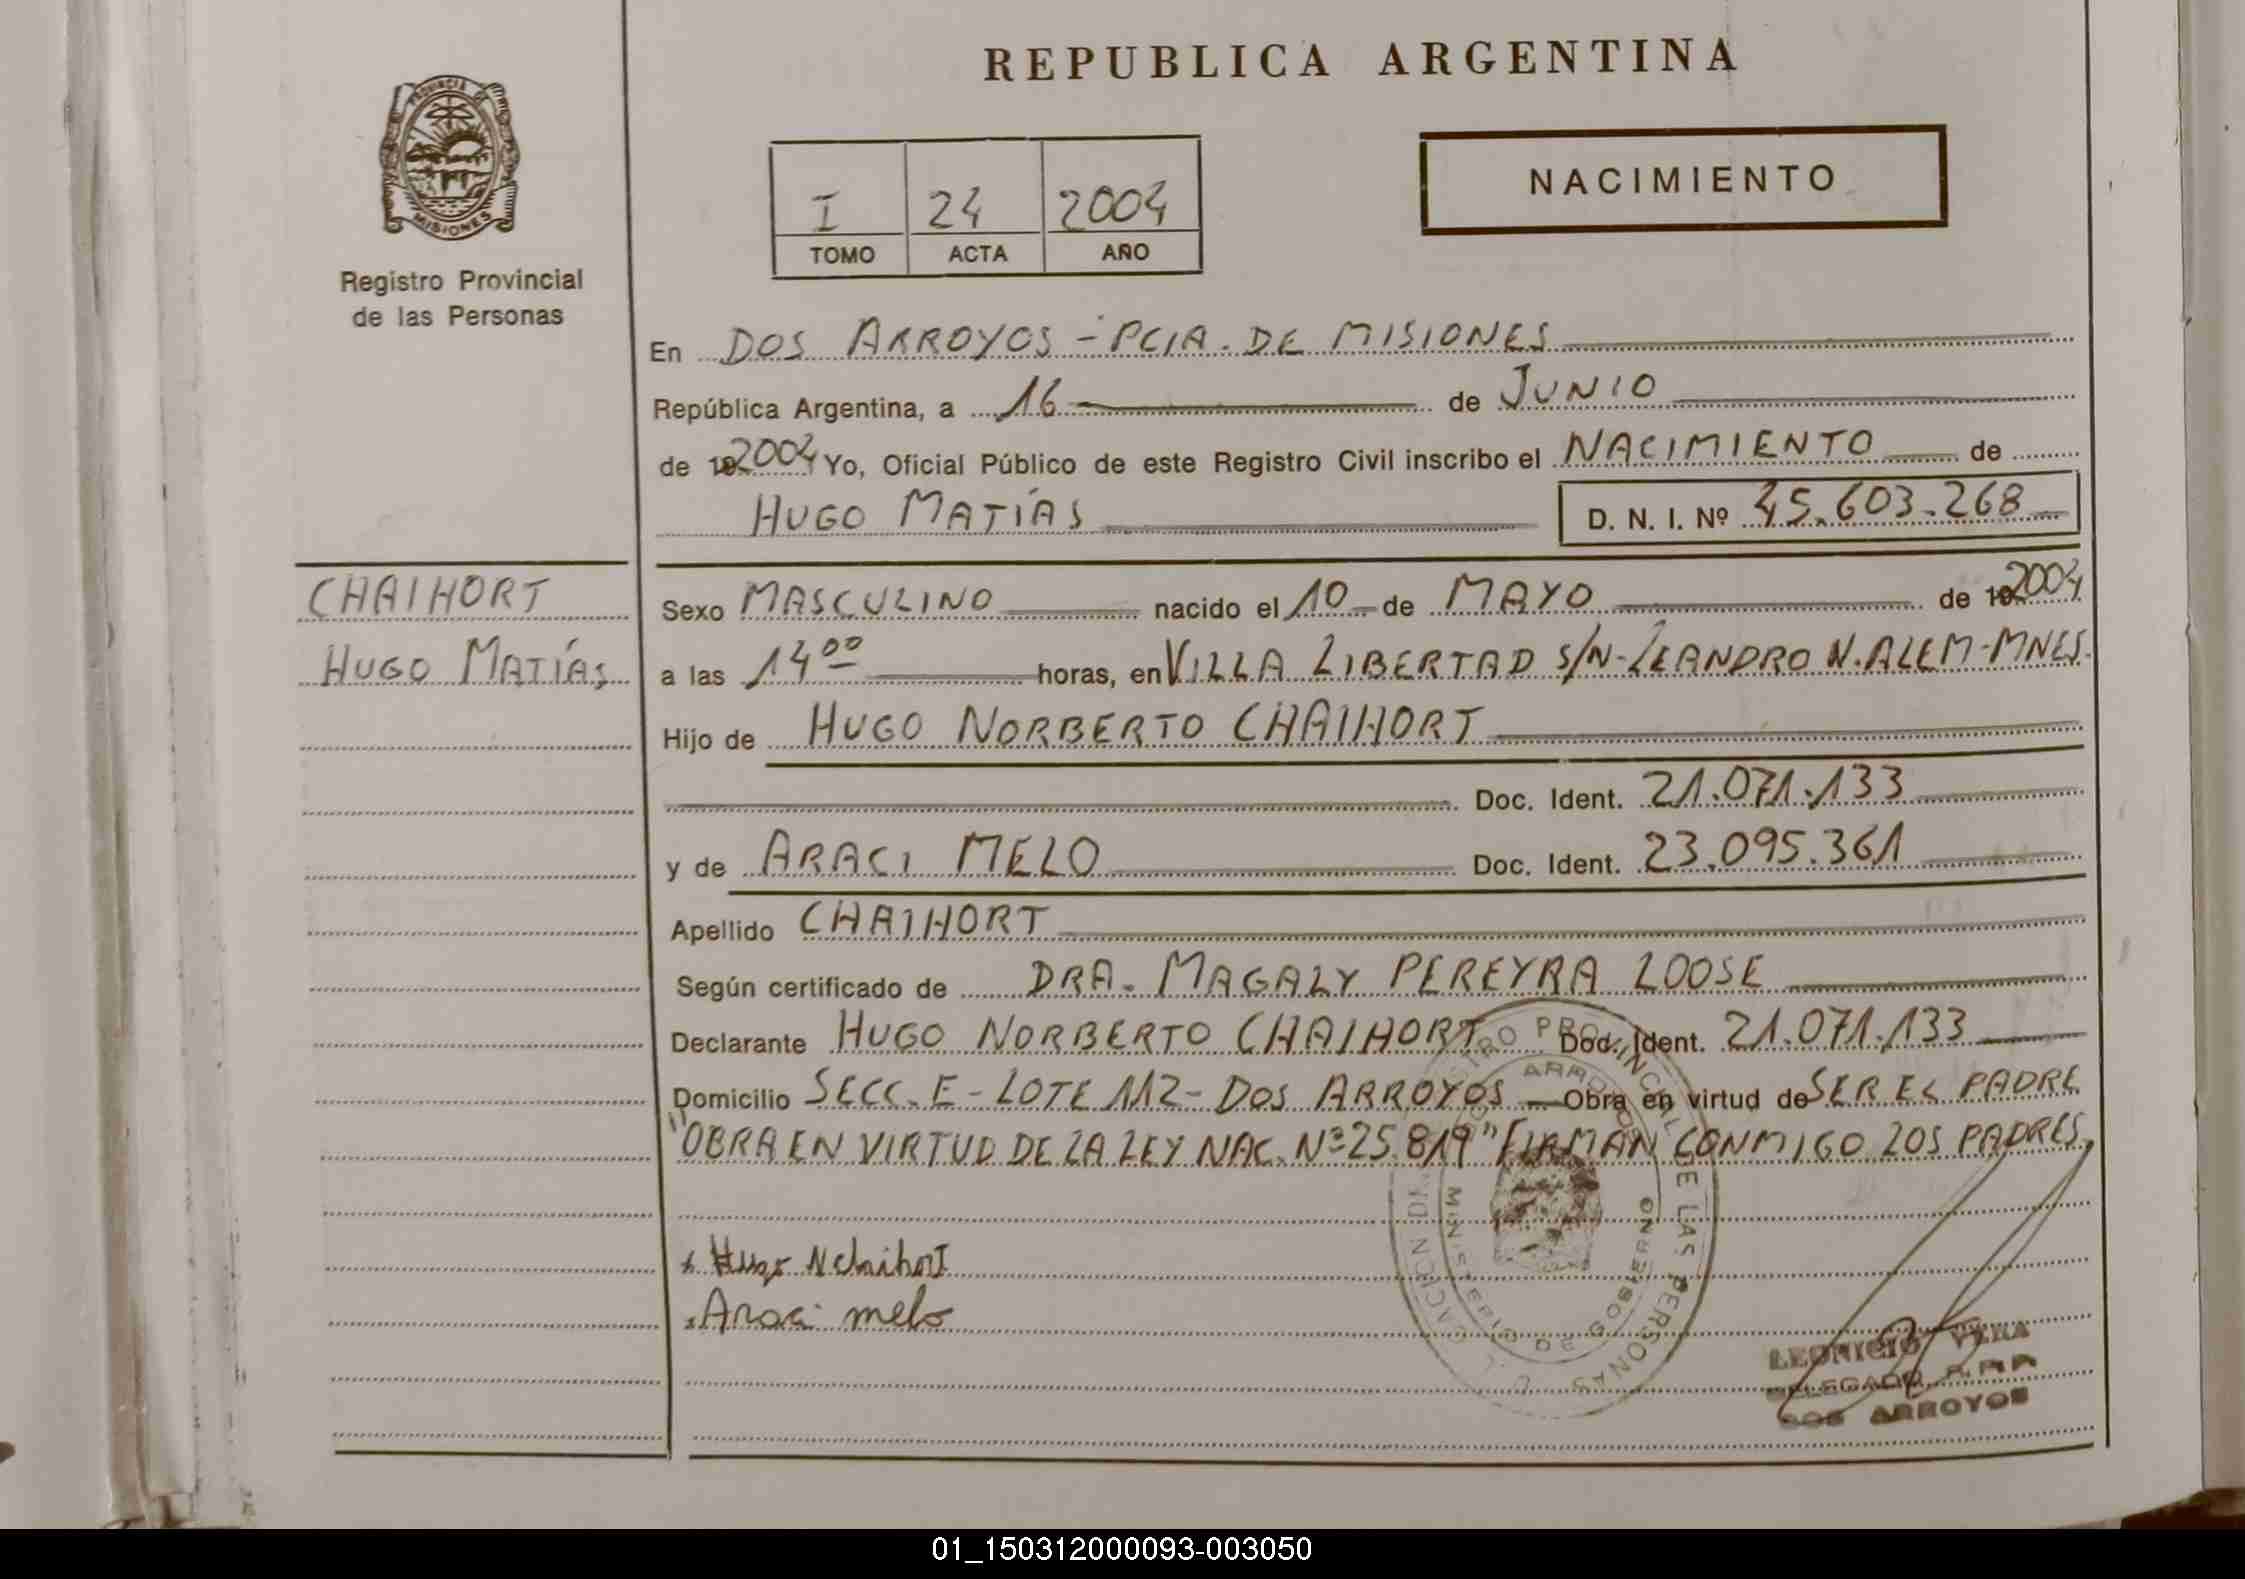 REPUBLICA ARGENTINA
PROVINCIA DE
MISIONES
Registro Provincial
de las Personas
I 24 2004
TOMO ACTA AÑO
NACIMIENTO
En DOS ARROYOS - PCIA. DE MISIONES
República Argentina, a 16 de JUNIO
de 19 2004 Yo, Oficial Público de este Registro Civil inscribo el NACIMIENTO de
HUGO MATÍAS D. N. I. Nº 45.603.268
CHAIHORT
HUGO MATÍAS
Sexo MASCULINO nacido el 10 de MAYO de 19 2004
a las 14 00 horas, en VILLA LIBERTAD S/N - LEANDRO N. ALEM - MNES.
Hijo de HUGO NORBERTO CHAIHORT
Doc. Ident. 21.071.133
y de ARACI MELO Doc. Ident. 23.095.361
Apellido CHAIHORT
Según certificado de DRA. MAGALY PEREYRA LOOSE
Declarante HUGO NORBERTO CHAIHORT Doc. Ident. 21.071.133
Domicilio SECC. E - LOTE 112 - DOS ARROYOS Obra en virtud de SER EL PADRE
"OBRA EN VIRTUD DE LA LEY NAC. Nº 25.819" FIRMAN CONMIGO LOS PADRES.
x Hugo N Chaihort
x Araci melo
LEONICIO VERA
DELEGADO
DOS ARROYOS
01_150312000093-003050